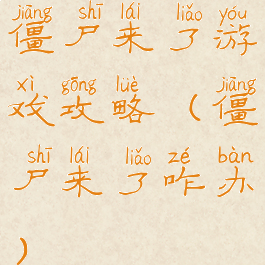 jiāng shī lái liǎo yóu
僵尸来了游
xì gōng lüè jiāng
戏攻略(僵
shī lái liǎo zé bàn
尸来了咋办
)